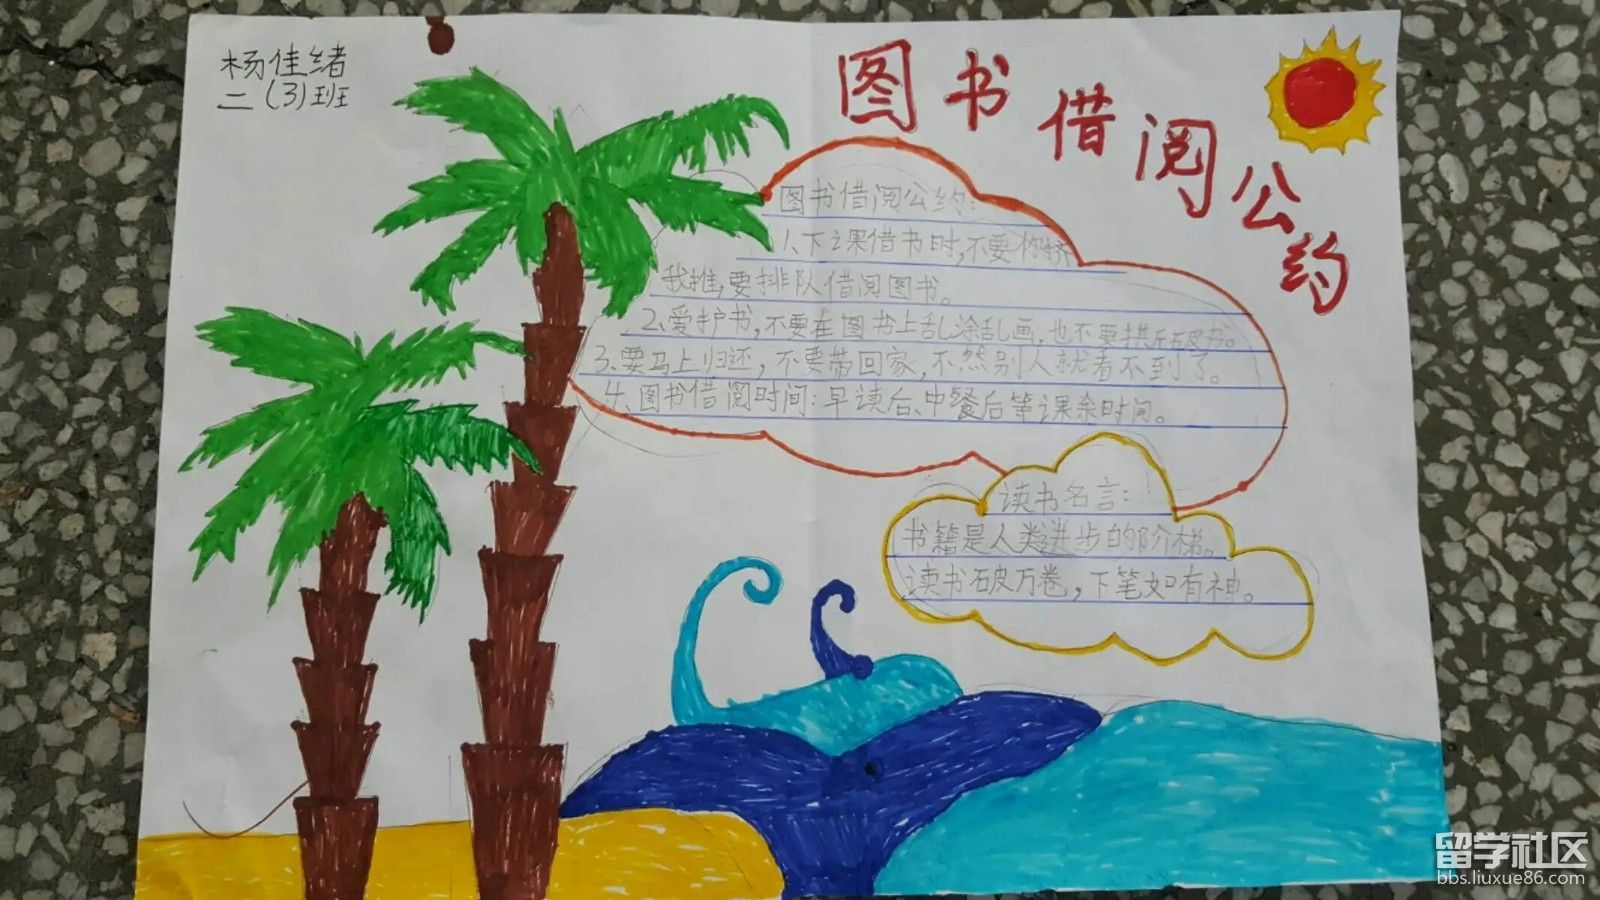 杨佳绪
二(3)班
图书借阅公约
图书借阅公约:
1、下课借书时,不要你挤
我推,要排队借阅图书。
2、爱护书,不要在图书上乱涂乱画,也不要撕破书。
3、要马上归还,不要带回家,不然别人就看不到了。
4、图书借阅时间:早读后、中餐后等课余时间。
读书名言:
书籍是人类进步的阶梯。
读书破万卷,下笔如有神。
留学社区
bbs.liuxue86.com